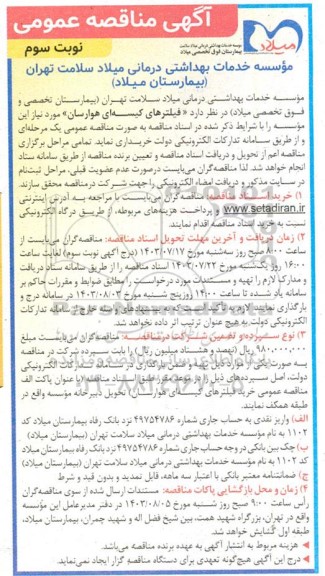 آگهی مناقصه عمومی
نوبت سوم
میلاد
موسسه خدمات بهداشتی درمانی میلاد سلامت
بیمارستان فوق تخصصی میلاد
مؤسسه خدمات بهداشتی درمانی میلاد سلامت تهران
(بیمارستان میلاد)
مؤسسه خدمات بهداشتی درمانی میلاد سلامت تهران (بیمارستان تخصصی و
فوق تخصصی میلاد) در نظر دارد «فیلترهای کیسه‌ای هوارسان» مورد نیاز این
مؤسسه را با شرایط ذکر شده در اسناد مناقصه به صورت مناقصه عمومی یک مرحله‌ای
و از طریق سامانه تدارکات الکترونیکی دولت خریداری نماید. تمامی مراحل برگزاری
مناقصه اعم از تحویل و دریافت اسناد مناقصه و تعیین برنده مناقصه از طریق سامانه ستاد
انجام خواهد شد. لذا مناقصه‌گران می‌بایست درصورت عدم عضویت قبلی، مراحل ثبت‌نام
در سایت مذکور و دریافت امضاء الکترونیکی را جهت شرکت درمناقصه محقق سازند.
۱) خرید اسناد مناقصه: مناقصه‌گران می‌بایست با مراجعه به آدرس اینترنتی
www.setadiran.ir و پرداخت هزینه‌های مربوطه، از طریق درگاه الکترونیکی
نسبت به خرید اسناد مناقصه اقدام نمایند.
۲) زمان دریافت و آخرین مهلت تحویل اسناد مناقصه: مناقصه‌گران می‌بایست از
ساعت ۸:۰۰ صبح روز سه‌شنبه مورخ ۱۴۰۳/۰۷/۱۷ (درج آگهی نوبت سوم) لغایت ساعت
۱۶:۰۰ روز یکشنبه مورخ ۱۴۰۳/۰۷/۲۲ اسناد مناقصه را از طریق سامانه ستاد دریافت
و مدارک لازم را تهیه و مستندات مورد درخواست را مطابق ضوابط و مقررات حاکم بر
سامانه یاد شده تا ساعت ۱۴:۰۰ روز پنج شنبه مورخ ۱۴۰۳/۰۸/۰۳ در سامانه درج و
بارگذاری نمایند. لازم به ذکر است به پیشنهادهای واصله خارج از سامانه تدارکات
الکترونیکی دولت به هیچ عنوان ترتیب اثر داده نخواهد شد.
۳) نوع سپرده و تضمین شرکت در مناقصه: مناقصه‌گران می‌بایست مبلغ
۹۸۰,۰۰۰,۰۰۰ ریال (نهصد و هشتاد میلیون ریال) را بابت سپرده شرکت در مناقصه
به صورت یکی از موارد ذیل تهیه و ضمن بارگذاری در سامانه تدارکات الکترونیکی
دولت، اصل سپرده‌های ذیل را مناقصه با عنوان پاکت الف
مناقصه عمومی خرید فیلترهای کیسه‌ای هوارسان تحویل دبیرخانه مؤسسه واقع در
طبقه همکف نمایند.
الف) واریز نقدی به حساب جاری شماره ۴۹۷۵۴۷۸۶ نزد بانک رفاه بیمارستان میلاد کد
۱۱۰۲ به نام مؤسسه خدمات بهداشتی درمانی میلاد سلامت تهران (بیمارستان میلاد)
ب) چک بین بانکی در وجه حساب جاری شماره ۴۹۷۵۴۷۸۶ نزد بانک رفاه بیمارستان میلاد
کد ۱۱۰۲ به نام مؤسسه خدمات بهداشتی درمانی میلاد سلامت تهران (بیمارستان میلاد)
ج) ضمانتنامه معتبر بانکی با اعتبار سه ماهه، قابل تمدید و بدون قید و شرط
۴) زمان و محل بازگشایی پاکات مناقصه: مستندات ارسال شده از سوی مناقصه‌گران
رأس ساعت ۹:۰۰ صبح روز شنبه مورخ ۱۴۰۳/۰۸/۰۵ در دفتر مدیرعامل این مؤسسه
واقع در تهران، بزرگراه شهید همت، بین شیخ فضل اله و شهید چمران، بیمارستان میلاد،
طبقه اول گشایش خواهد شد.
هزینه مربوط به انتشار آگهی به عهده برنده مناقصه می‌باشد.
درج این آگهی هیچ‌گونه تعهدی برای دستگاه مناقصه گزار ایجاد نمی‌نماید.